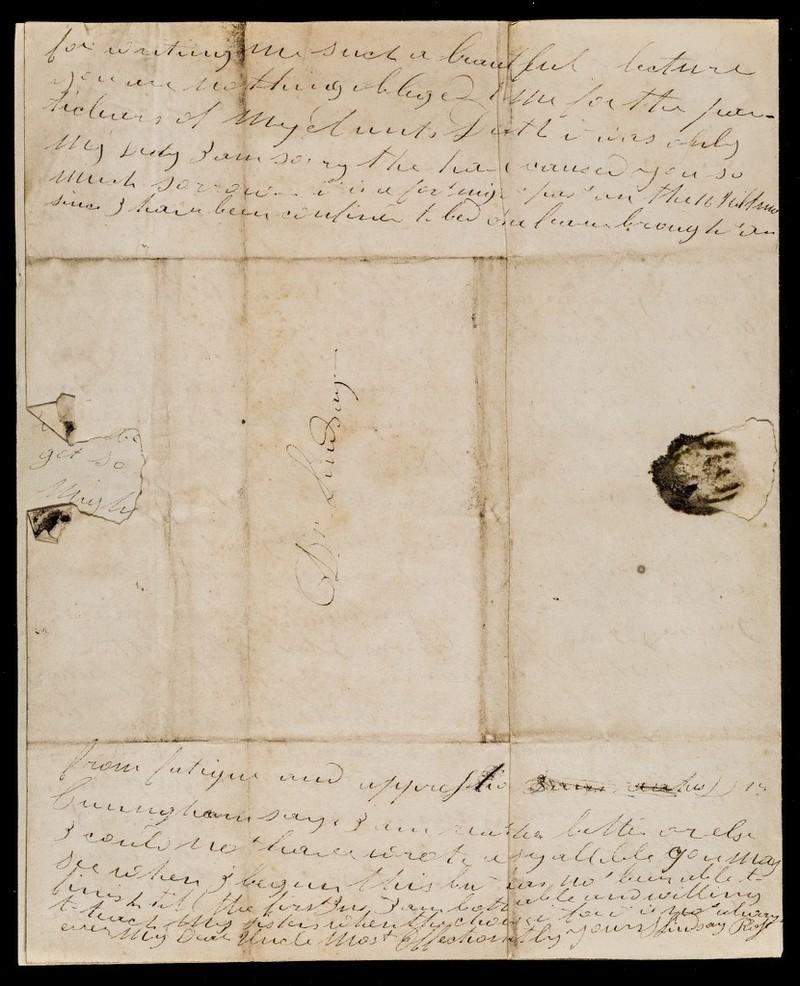 for writing me such a beautiful lecture
you are nothing obliged to me for the par-
ticulers of My Aunts Death it was only
My Duty I am sorry the has caused you so
much sorrow it is a fortnight past on the 16
since I have been confined to bed one leav brought on
get so
Might
Dr. Lindsay
from fatigue and oppressio Dr
Cuningham says I am rather better or else
I could not have wrote you may
see when I begun this but was not been able to
finish it till the first Ins I am both able and willing
to teach My sisters when they chouse it for it is not always
ever My Dear Uncle Most Affectionatly yours Lindsay Rose